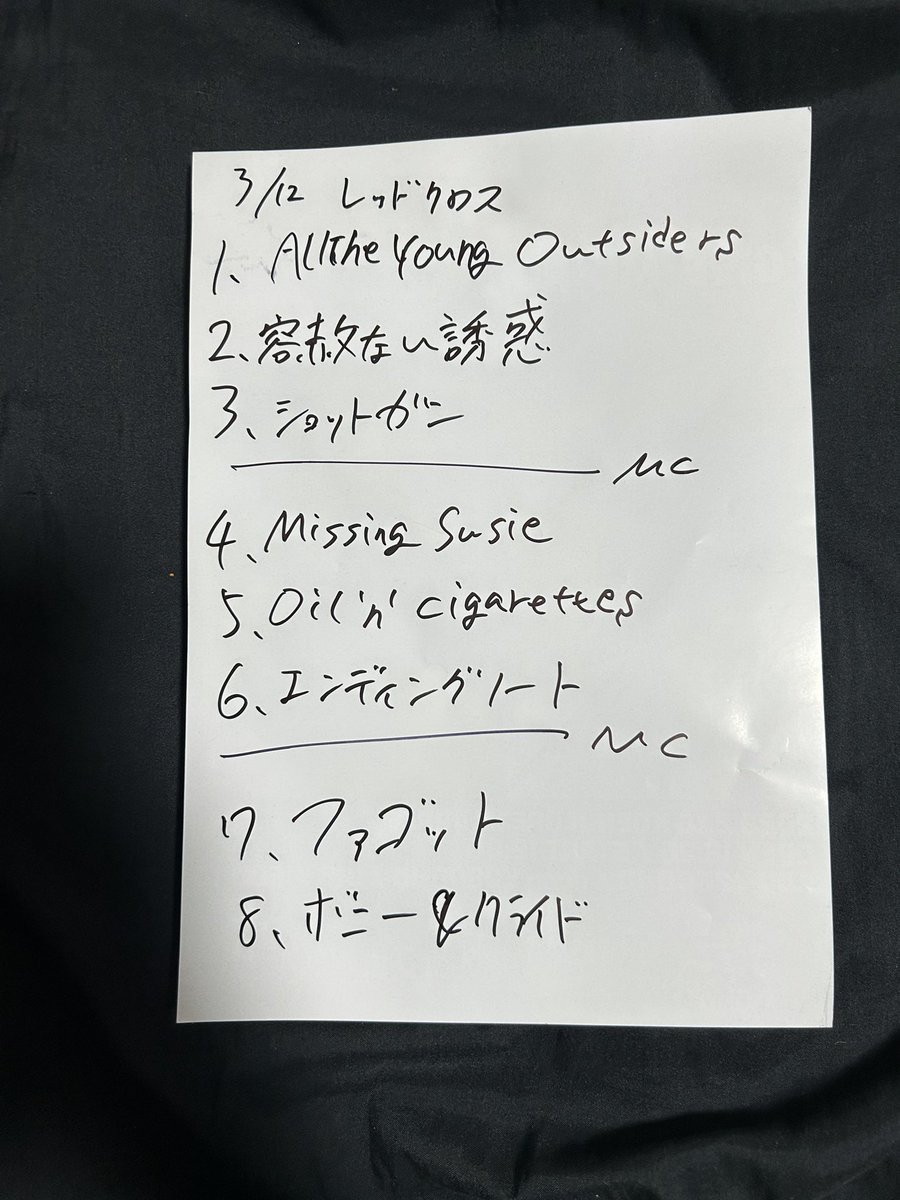 3/12 レッドクロス
1、All The Young Outsiders
2、容赦ない誘惑
3、ショットガン
MC
4、Missing Susie
5、Oil 'n' cigarettes
6、エンディングノート
MC
7、ファゴット
8、ボニー&クライド